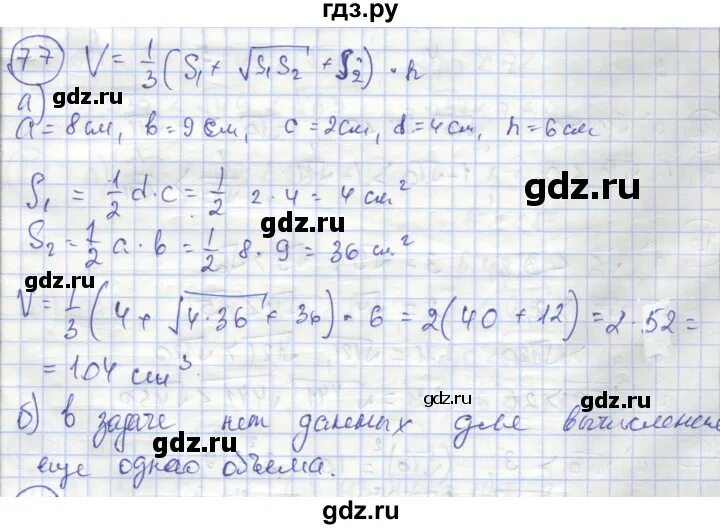 гдз.ру
77 V = 1/3 (S₁ + √S₁S₂ + S₂) · h
а)
gdz.ru
a = 8 см, b = 9 см, c = 2 см, d = 4 см, h = 6 см
gdz.ru
S₁ = 1/2 d · c = 1/2 2 · 4 = 4 см²
gdz.ru
S₂ = 1/2 a · b = 1/2 8 · 9 = 36 см²
gdz.ru
V = 1/3 (4 + √4·36 + 36) · 6 = 2(40 + 12) = 2 · 52 =
= 104 см³
gdz.ru
gdz.ru
б) в задаче нет данных для вычисления
gdz.ru
еще одного объема.
gdz.ru